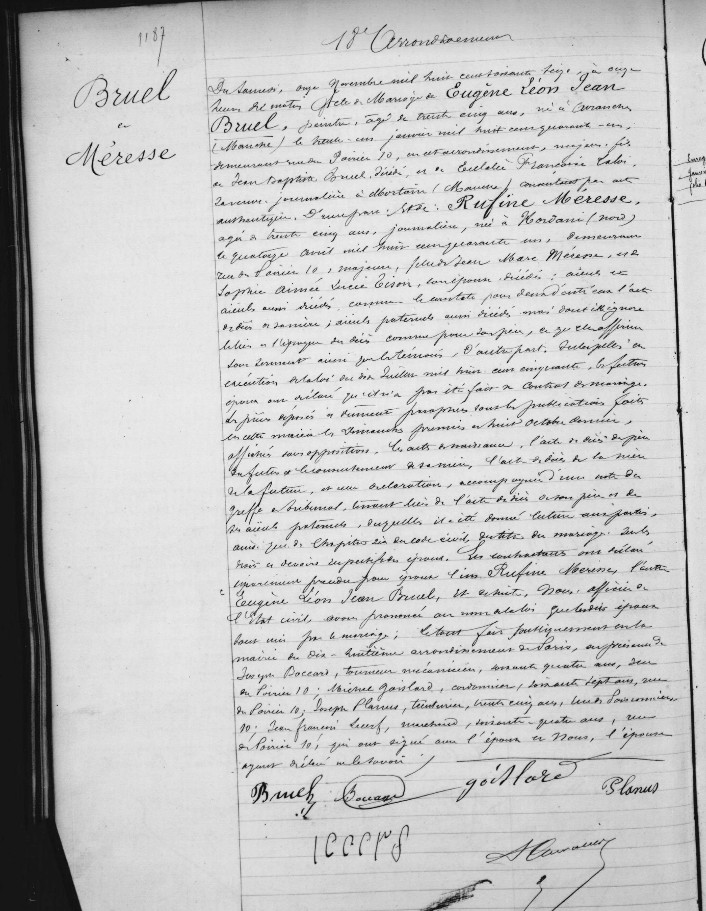 1187
18e Arrondissement
Bruel
et
Méresse
Du Samedi, onze Novembre mil huit cent soixante seize, à onze
heures dix matin. Acte de Mariage de Eugène Léon Jean
Bruel, peintre, âgé de trente cinq ans, né à Avranches
(Manche) le trente-un janvier mil huit cent quarante-un,
demeurant rue du Poirier 10, en cet arrondissement, majeur, fils
de Jean Baptiste Bruel, décédé, et de Eulalie Françoise
sa veuve, journalière à Mortain (Manche) consentant par acte
authentique. D'une part. Et de: Rufine Méresse,
âgée de trente cinq ans, journalière, née à Hordain (nord)
le quatorze avril mil huit cent quarante un, demeurant
rue du Poirier 10, majeure, fille de Jean Marc Méresse, et de
Sophie Aimée Lucie Tison, son épouse, décédés; aïeuls et
aïeules aussi décédés, comme le constate pour ceux d'entre eux l'acte
de décès de sa mère; aïeuls paternels aussi décédés mais dont elle ignore
le lieu et l'époque du décès comme pour son père, ce qu'elle affirme
sous serment ainsi que les témoins, D'autre part. Interpellés en
exécution de la loi du dix Juillet mil huit cent cinquante, les futurs
époux ont déclaré qu'il n'a pas été fait de contrat de mariage.
Les pièces déposées et dûment paraphées sont les publications faites
en cette mairie les Dimanches premier et huit octobre dernier,
affichées sans opposition. Les actes de naissance, l'acte de décès du père
du futur et le consentement de sa mère, l'acte de décès de la mère
de la future, et une déclaration, accompagnée d'une note du
greffe du tribunal, tenant lieu de l'acte de décès de son père et de
ses aïeuls paternels, desquelles il a été donné lecture aux parties,
ainsi que du chapitre six du code civil, du titre du mariage, sur les
droits et devoirs respectifs des époux. Les contractants ont déclaré
séparément prendre pour époux l'un Rufine Méresse, l'autre
Eugène Léon Jean Bruel, Et de suite, Nous, officier de
l'Etat civil, avons prononcé au nom de la loi que lesdits époux
sont unis par le mariage; Le tout fait publiquement en la
mairie du Dix-huitième arrondissement de Paris, en présence de
Joseph Boccard, tourneur mécanicien, soixante quatre ans, rue
du Poirier 10; Goislard, cordonnier, soixante sept ans, rue
du Poirier 10; Joseph Planus, teinturier, trente cinq ans, rue des Poissonniers
10; Jean François marchand, soixante quatre ans, rue
du Poirier 10; qui ont signé avec l'époux et Nous, l'épouse
ayant déclaré ne le savoir.
Bruel Boccard goislard Planus